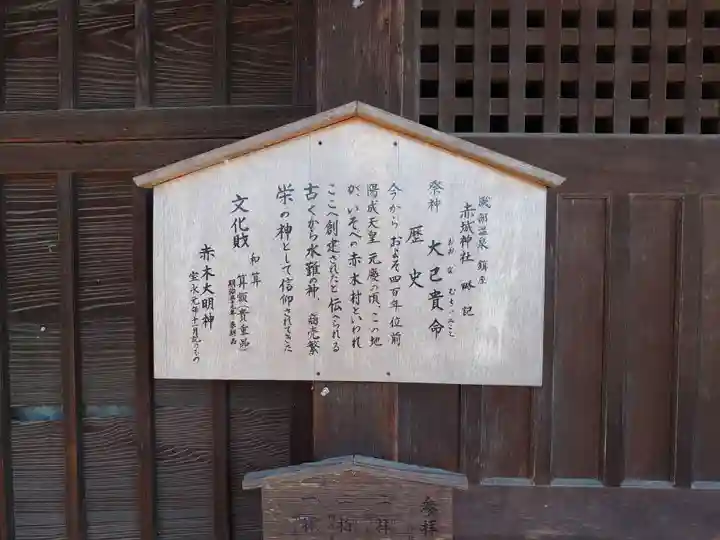 磯部温泉 鎮座
赤城神社 略記
祭神 大己貴命
おおなむちのみこと
歴史
今から およそ四百年位前
陽成天皇 元慶の頃、この地
がいそべの赤木村といわれ
ここへ創建されたと伝へられる
古くから水難の神、商売繁
栄の神として信仰されてきた
文化財
和算 算額(貴重品)
明治
奉納品
赤木大明神
宝永元年十一月記
参拝
二拝
二拍
一拝